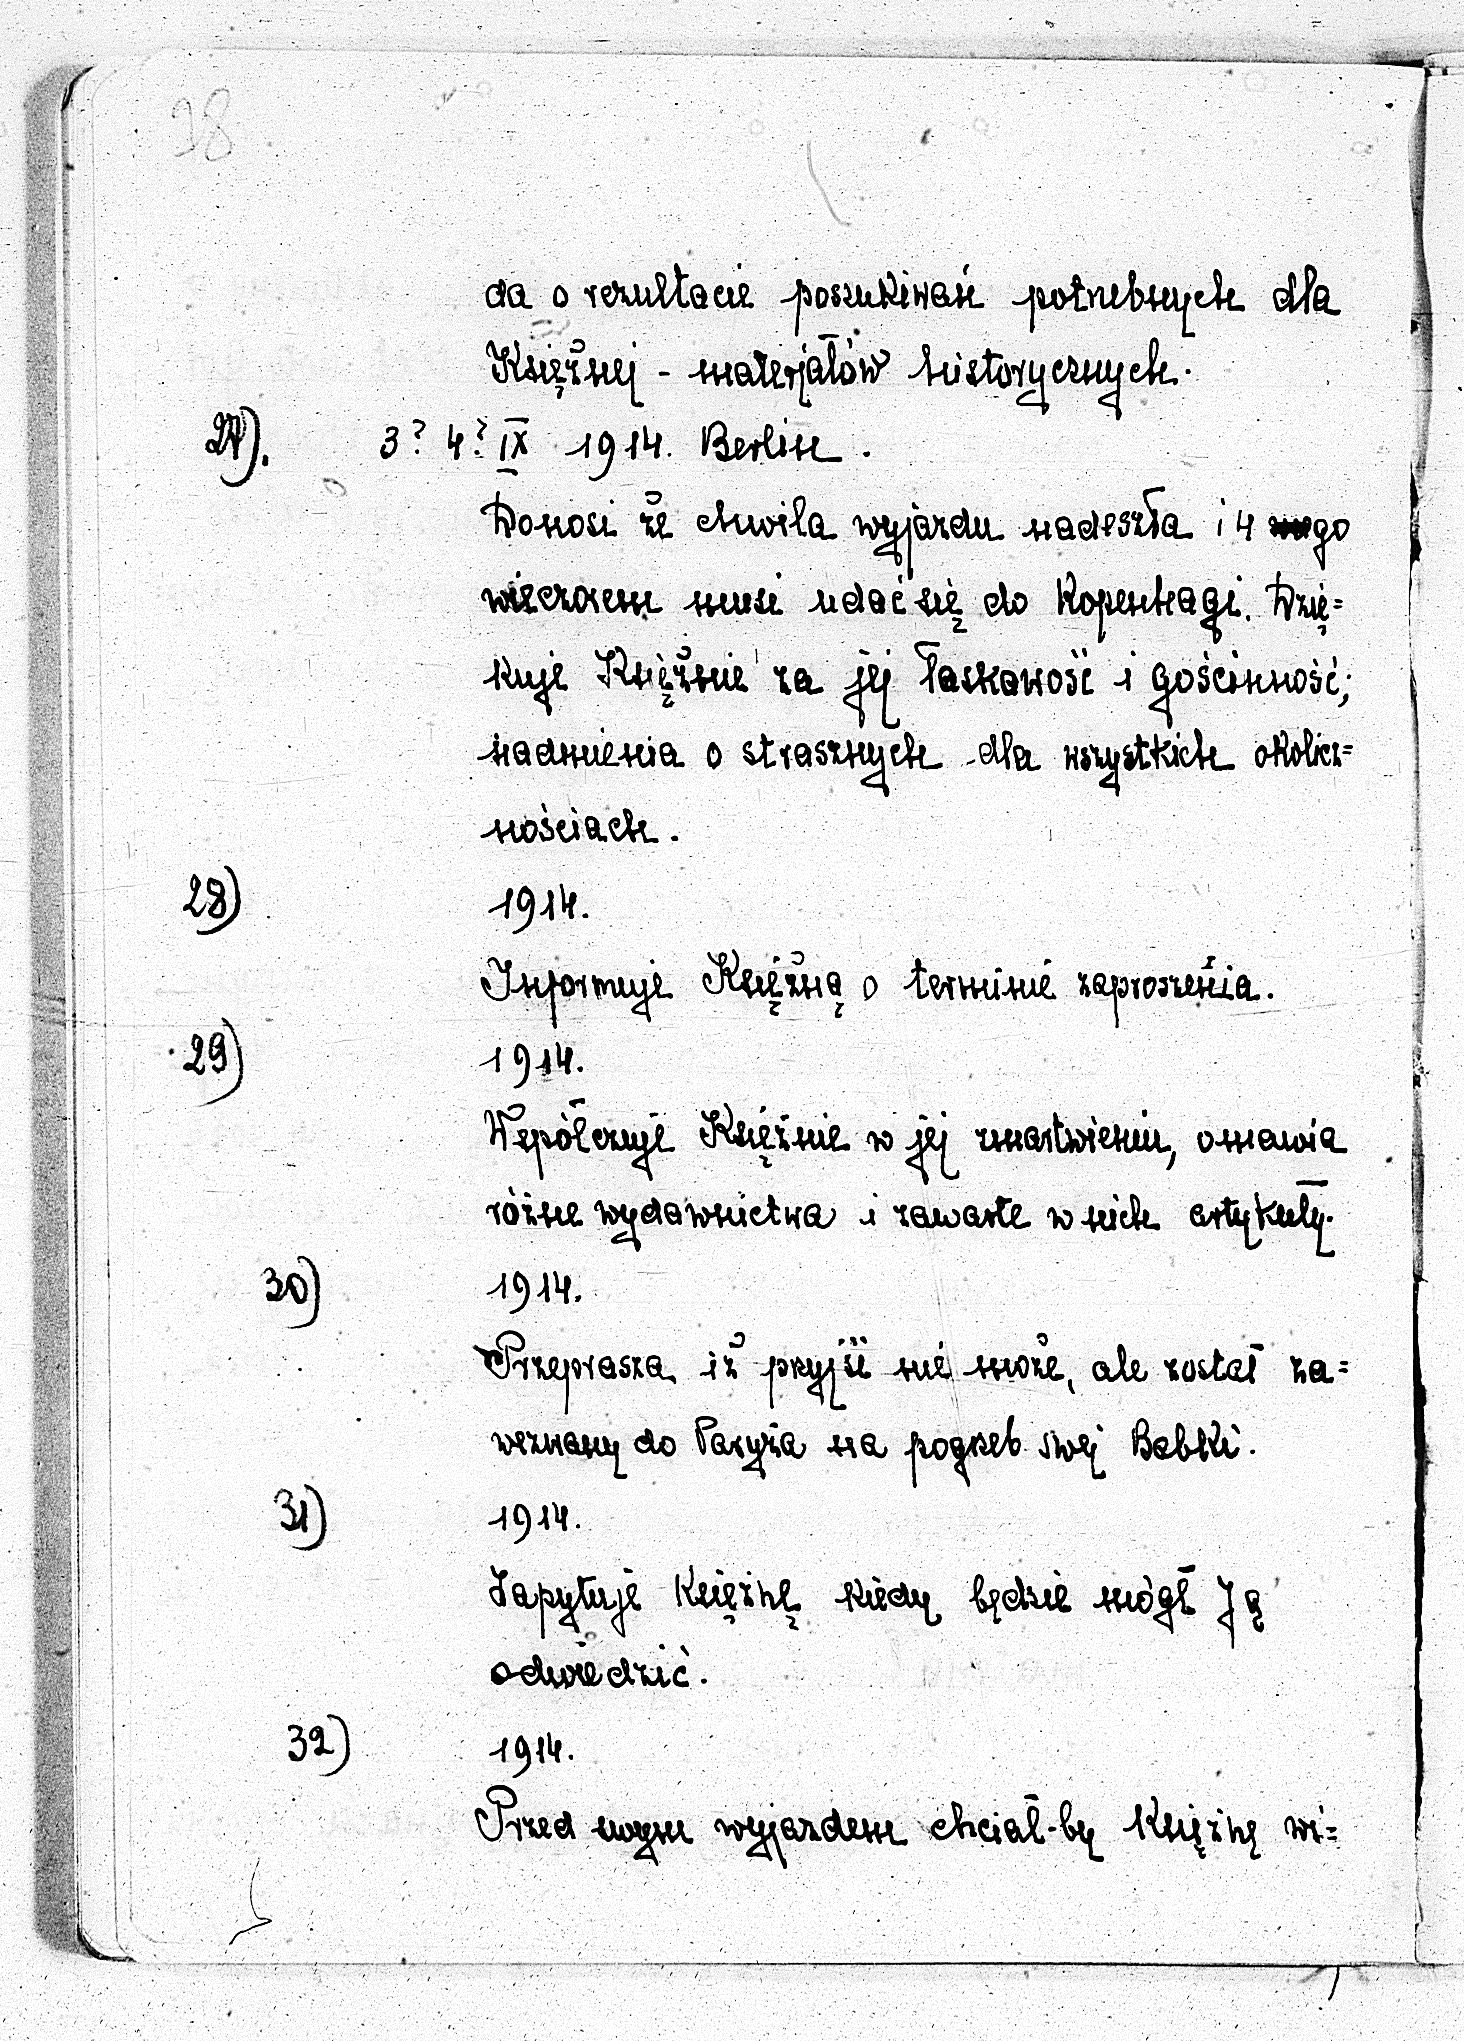 98
da o rezultacie poszukiwań potrzebnych dla
Księżnej - materjałów historycznych.
27).
3? 4? IX 1914. Berlin.
Donosi że chwila wyjazdu nadeszła i 4 go
wieczorem musi udać się do Kopenhagi. Dzię=
kuje Księżnie za jej łaskawość i gościnność;
nadmienia o strasznych dla wszystkich okolicz=
nościach.
28) 1914.
Informuje Księżną o terminie zaproszenia.
29) 1914.
Współczuje Księżnie w jej zmartwieniu, omawia
różne wydawnictwa i zawarte w nich artykuły.
30) 1914.
Przeprasza iż pryjść nie może, ale został za=
wezwany do Paryża na pogrzeb swej Babki.
31) 1914.
Zapytuje Księżnę kiedy będzie mógł Ją
odwiedzić.
32) 1914.
Przed swym wyjazdem chciał-by Księżnę wi=